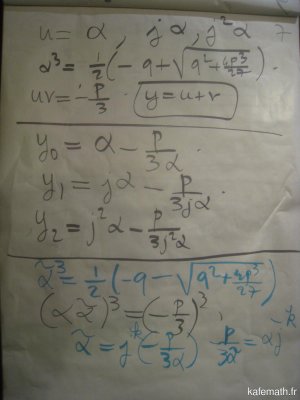 u = α , jα , j²α
α³ = 1/2 (-q + √(q² + 4p³/27)) .
uv = -p/3 . y = u+v
y₀ = α - p/3α
y₁ = jα - p/3jα .
y₂ = j²α - p/3j²α
α̃³ = 1/2 (-q - √(q² + 4p³/27))
(αα̃)³ = (-p/3)³ ,
α̃ = j^k (-p/3α) p/3α̃ = αj^-k
kafemath.fr